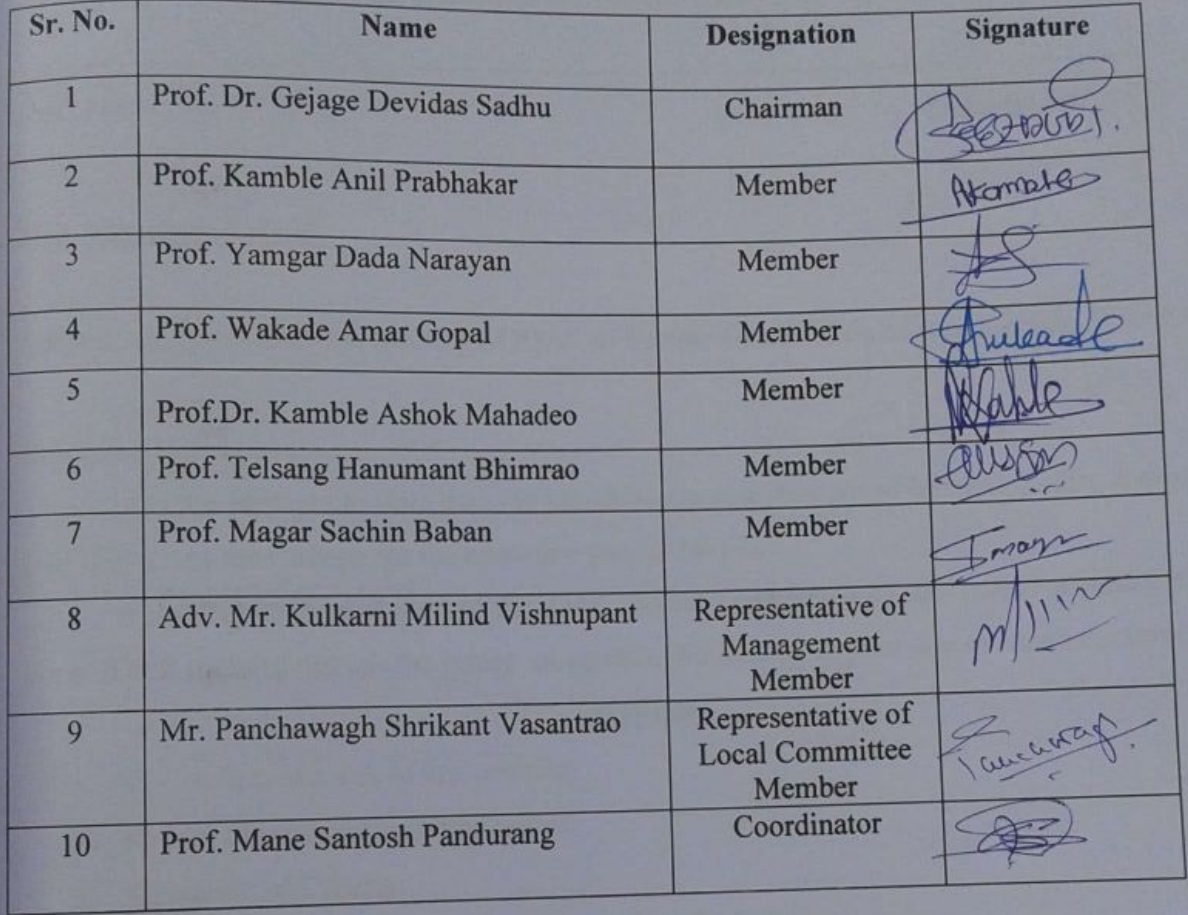 Sr. No. Name Designation Signature
1 Prof. Dr. Gejage Devidas Sadhu Chairman
2 Prof. Kamble Anil Prabhakar Member
3 Prof. Yamgar Dada Narayan Member
4 Prof. Wakade Amar Gopal Member
5 Prof.Dr. Kamble Ashok Mahadeo Member
6 Prof. Telsang Hanumant Bhimrao Member
7 Prof. Magar Sachin Baban Member
8 Adv. Mr. Kulkarni Milind Vishnupant Representative of
Management
Member
9 Mr. Panchawagh Shrikant Vasantrao Representative of
Local Committee
Member
10 Prof. Mane Santosh Pandurang Coordinator